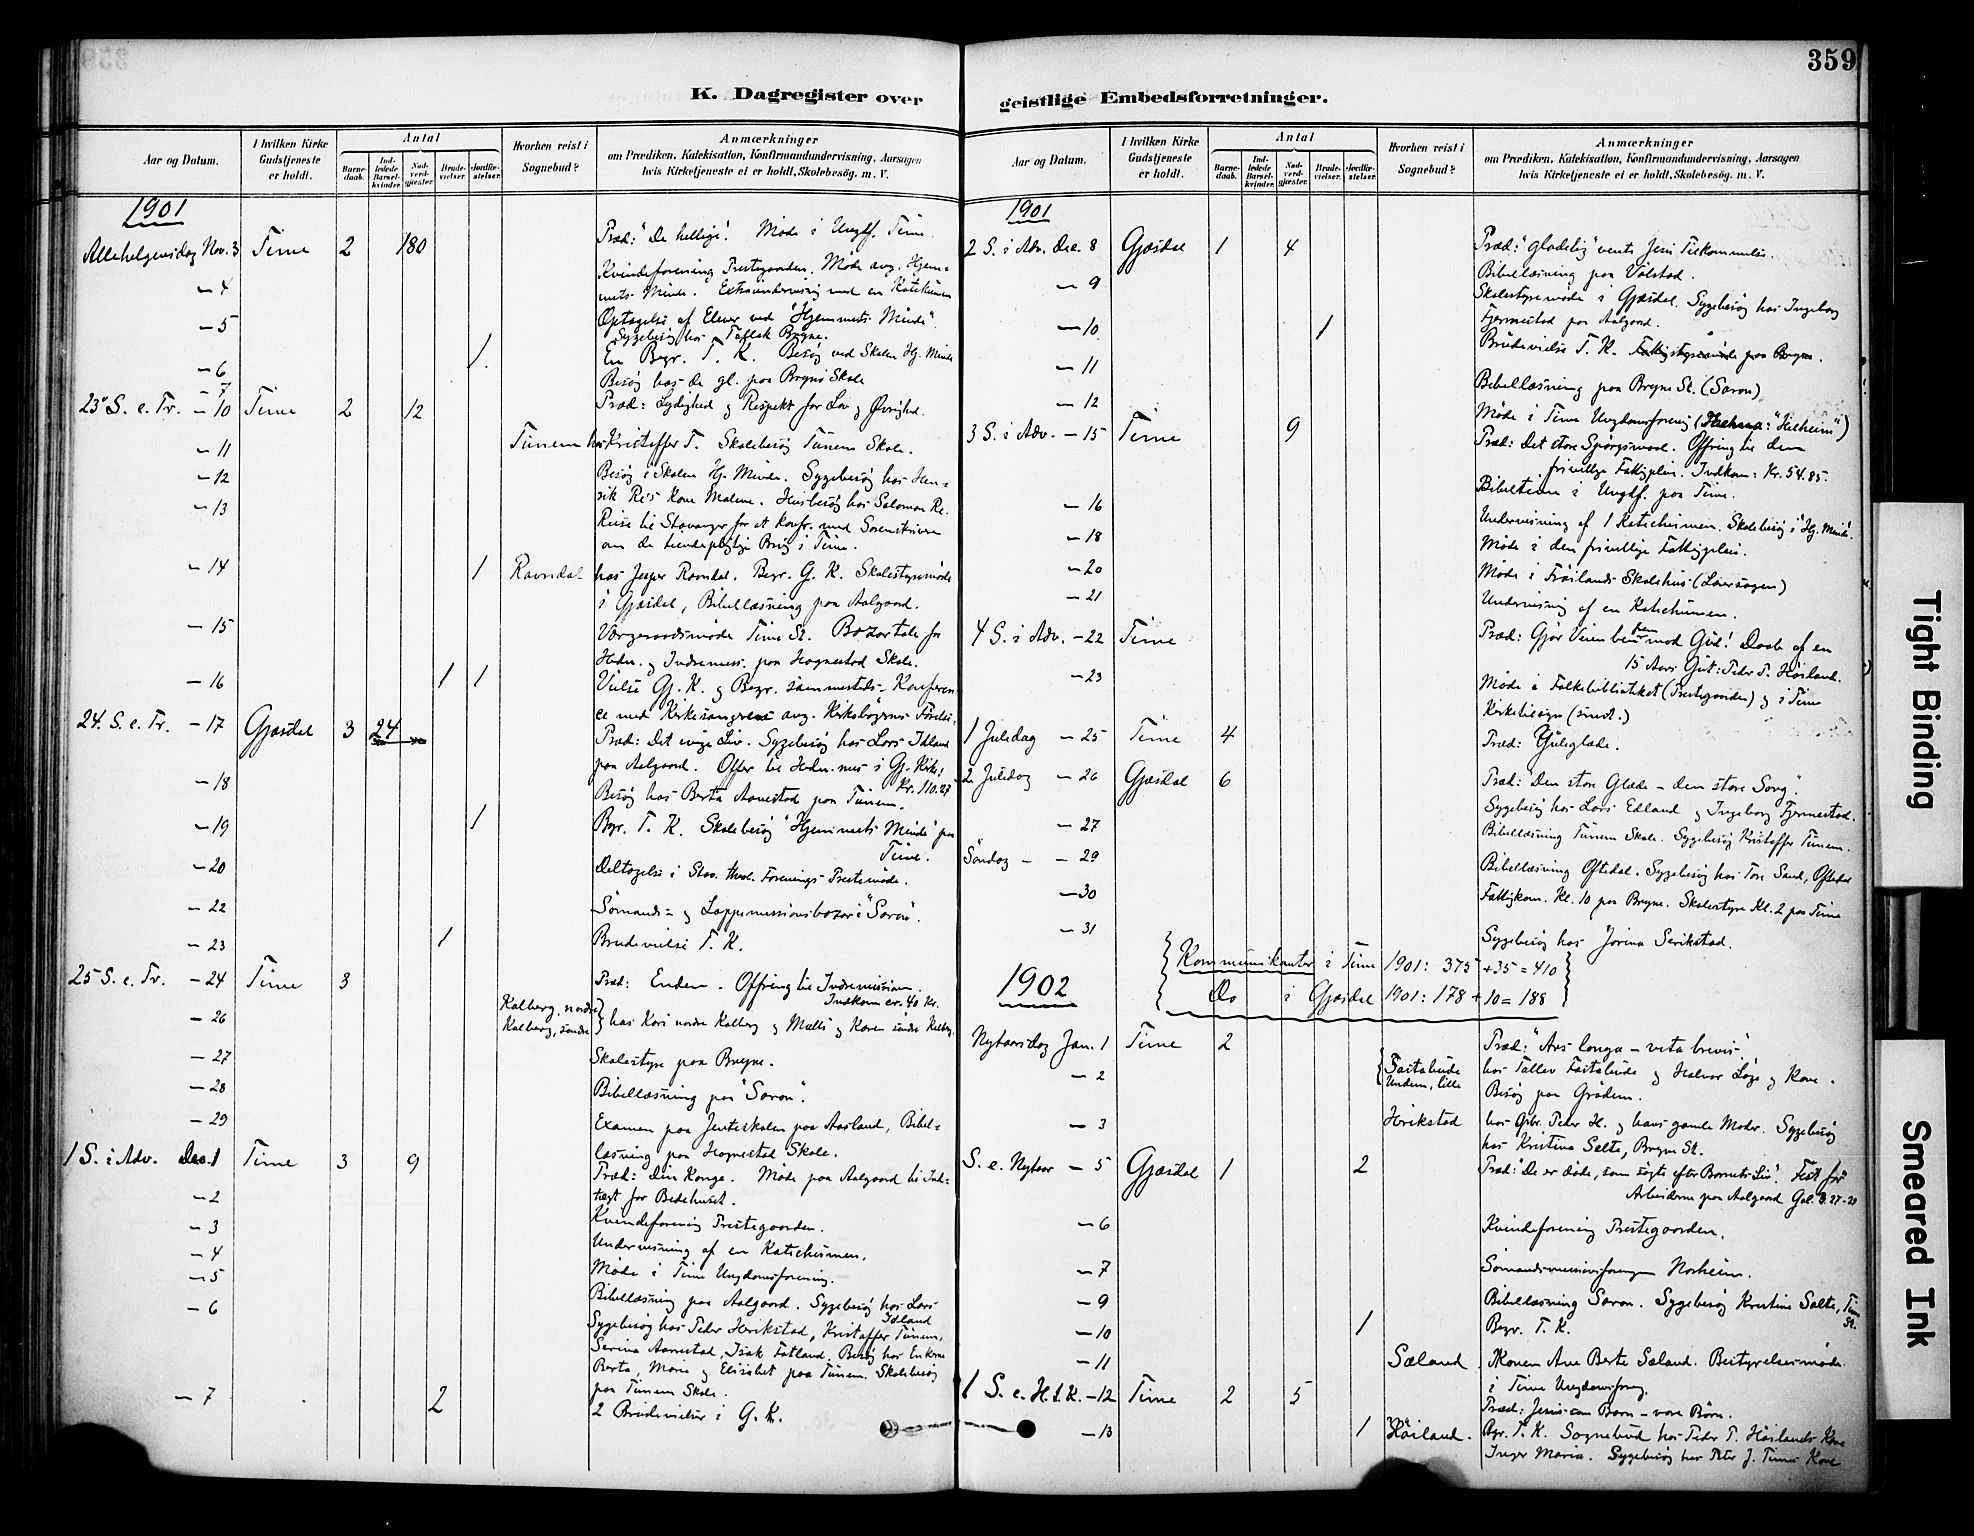 359
K. Dagregister over
geistlige Embedsforretninger.
Aar og Datum.
I hvilken Kirke Gudstjeneste er holdt.
Antal
Barnedaab.
Indledede Barselkvinder.
Nadverdgjæster.
Brudevielser.
Jordfæstelser.
Hvorhen reist i Sognebud?
Anmærkninger
om Prædiken, Katekisation, Konfirmandundervisning, Aarsagen
hvis Kirketjeneste ei er holdt, Skolebesøg. m. V.
1901
Allehelgensdag Nov. 3 Time 2 180 Præd: "De hellige". Møde i Ungdf. Time.
— 4 Kvindeforening Prestegaarden. Møde ang. Hjem=
mets Minde. Extraundervisning med en Katekumen
— 5 Optagelse af Elever ved "Hjemmets Minde".
Sygebesøg hos Bryne.
— 6 1 En Begr. T. K. Besøg ved Skolen Hj. Minde
— 7 Besøg hos de gl. paa Bryne Skole
23 S. e. Tr. — 10 Time 2 12 Præd: Lydighed og Respekt for Lov og Øvrighed.
— 11 Tunem hos Kristoffer T. Skolebesøg Tunem Skole.
— 12 Besøg i Skolen Hj. Minde. Sygebesøg hos Hen=
rik Re's Kone Malene. Husbesøg hos Salomon Re.
— 13 Reise til Stavanger for at konfr. med Sorenskriven
om de tiendepligtige Brug i Time.
— 14 1 Ravndal hos Jesper Ravndal. Begr. G. K. Skolestyremøde
i Gjæsdal, Bibellæsning paa Aalgaard.
— 15 Vergeraadsmøde Time St. Bazartale for
Heden. og Indremiss. paa Hognestad Skole.
— 16 1 1 Vielse Gj. K. og Begr. sammesteds. Konferen
ce med Kirkesangerne ang. Kirkebøgernes Førelse.
24. S. e. Tr. — 17 Gjæsdal 3 24 Præd: Det evige Liv. Sygebesøg hos Lars Idland
paa Aalgaard. Offer til Heden. mis i Gj. Kirke:
Kr. 110.27
— 18 Besøg hos Berta Aarrestad paa Tunem.
— 19 1 Begr. T. K. Skolebesøg "Hjemmets Minde" paa
Time.
— 20 Deltagelse i Stav. theol. Forenings Prestemøde.
— 22 Sømands= og Lappemissionsbazar i "Saron".
— 23 1 Brudevielse T. K.
25 S. e. Tr. — 24 Time 3 Præd: Enden. Offring til Indremission.
Indkom cr. 40 Kr.
— 26 Kalberg, nordre
Kalberg, søndre } hos Kari nordre Kalberg og Malli og Karen søndre Kalberg.
— 27 Skolestyre paa Bryne.
— 28 Bibellæsning paa "Saron".
— 29 Examen paa Jenteskolen paa Aasland, Bibel=
læsning paa Hognestad Skole.
1 S. i Adv. Dec. 1 Time 3 9 Præd: Din Konge. Møde paa Aalgaard til Ind=
tægt for Bedehuset.
— 2 Kvindeforening Prestegaarden.
— 3 Undervisning af en Katechumen.
— 4 Møde i Time Ungdomsforening.
— 5 Bibellæsning paa Aalgaard. Sygebesøg hos Lars
Idland
— 6 Sygebesøg hos Peder Herikstad, Kristoffer Tunem,
Serina Aarrestad, Isak Fotland. Besøg hos Enkerne
Berta, Marie og Elisabet paa Tunem. Skolebesøg
paa Tunem Skole.
— 7 2 2 Brudevielser i G. K.
1901
2 S. i Adv. Dec. 8 Gjæsdal 1 4 Præd: "Gladelig" vente Jesu Tilkommelse.
Bibellæsning paa Vølstad.
— 9 Skolestyremøde i Gjæsdal. Sygebesøg hos Ingeborg
Fjermestad paa Aalgaard.
— 10 1 Brudevielse T. K. Fattigstyremøde paa Bryne.
— 11 Bibellæsning paa Bryne St. (Saron)
— 12 Møde i Time Ungdomsforening ( : "Heiheim")
3 S. i Adv. — 15 Time 9 Præd: Det store Spørgsmaal. Offring til den
frivillige Fattigpleie. Indkom: Kr. 54.85.
Bibeltime i Ungdf. paa Time.
— 16 Undervisning af 1 Katechumen. Skolebesøg i "Hj. Minde".
— 18 Møde i den frivillige Fattigpleie.
— 20 Møde i Frøilands Skolehus (Lærersagen)
— 21 Undervisning af en Katechumen.
4 S. i Adv. — 22 Time Præd: Gjør Veien bered mod Gud! Daab af en
15 Aars Gut: Peder P. Høiland.
— 23 Møde i Folkebibliotheket (Prestegaarden) og i Time
Kirketilsyn (smst.)
1 Juledag — 25 Time 4 Præd: Juleglæde.
2 Juledag — 26 Gjæsdal 6 Præd: "Den store Glæde – den store Sorg".
Sygebesøg hos Lars Edland og Ingeborg Fjermestad.
— 27 Bibellæsning Tunem Skole. Sygebesøg Kristoffer Tunem.
Søndag — — 29 Bibellæsning Oftedal. Sygebesøg hos Tore Sand, Oftedal
— 30 Fattigkom. Kl. 10 paa Bryne. Skolestyre Kl. 2 paa Time
— 31 Sygebesøg hos Jorina Serikstad.
Kommunikanter i Time 1901: 375 + 35 = 410
Do i Gjæsdal 1901: 178 + 10 = 188
1902
Nytaarsdag Jan. 1 Time 2 Præd: "Ars longa – vita brevis".
— 2 Fastabude
Undem, lille hos Tallev Fastabude og Halvor Løge og Kone.
Besøg paa Grødem.
— 3 Herikstad hos Gbr. Peder H. og hans gamle Moder. Sygebesøg
hos Kristina Salte, Bryne St.
S. e. Nytaar — 5 Gjæsdal 1 2 Præd: "De er døde, som søgte efter Barnets Liv". Fest for
Arbeiderne paa Aalgaard Gal. 3.27-29
— 6 Kvindeforening Prestegaarden.
— 7 Sømandsmissionsforeningen Norheim.
— 9 Bibellæsning Saron. Sygebesøg Kristine Salte, Time
St.
— 10 1 Begr. T. K.
— 11 Sæland Konen Ane Berte Sæland. Bestyrelsesmøde
i Time Ungdomsforeng.
1 S. e. H.3.K. — 12 Time 2 5 Præd: Jesus som Barn – vore Børn.
— 13 1 Høiland. Begr. T. K. Sognebud hos Peder P. Høilands Kone
Inger Maria. Sygebesøg hos Peter J. Times Kone
Tight Binding
Smeared Ink